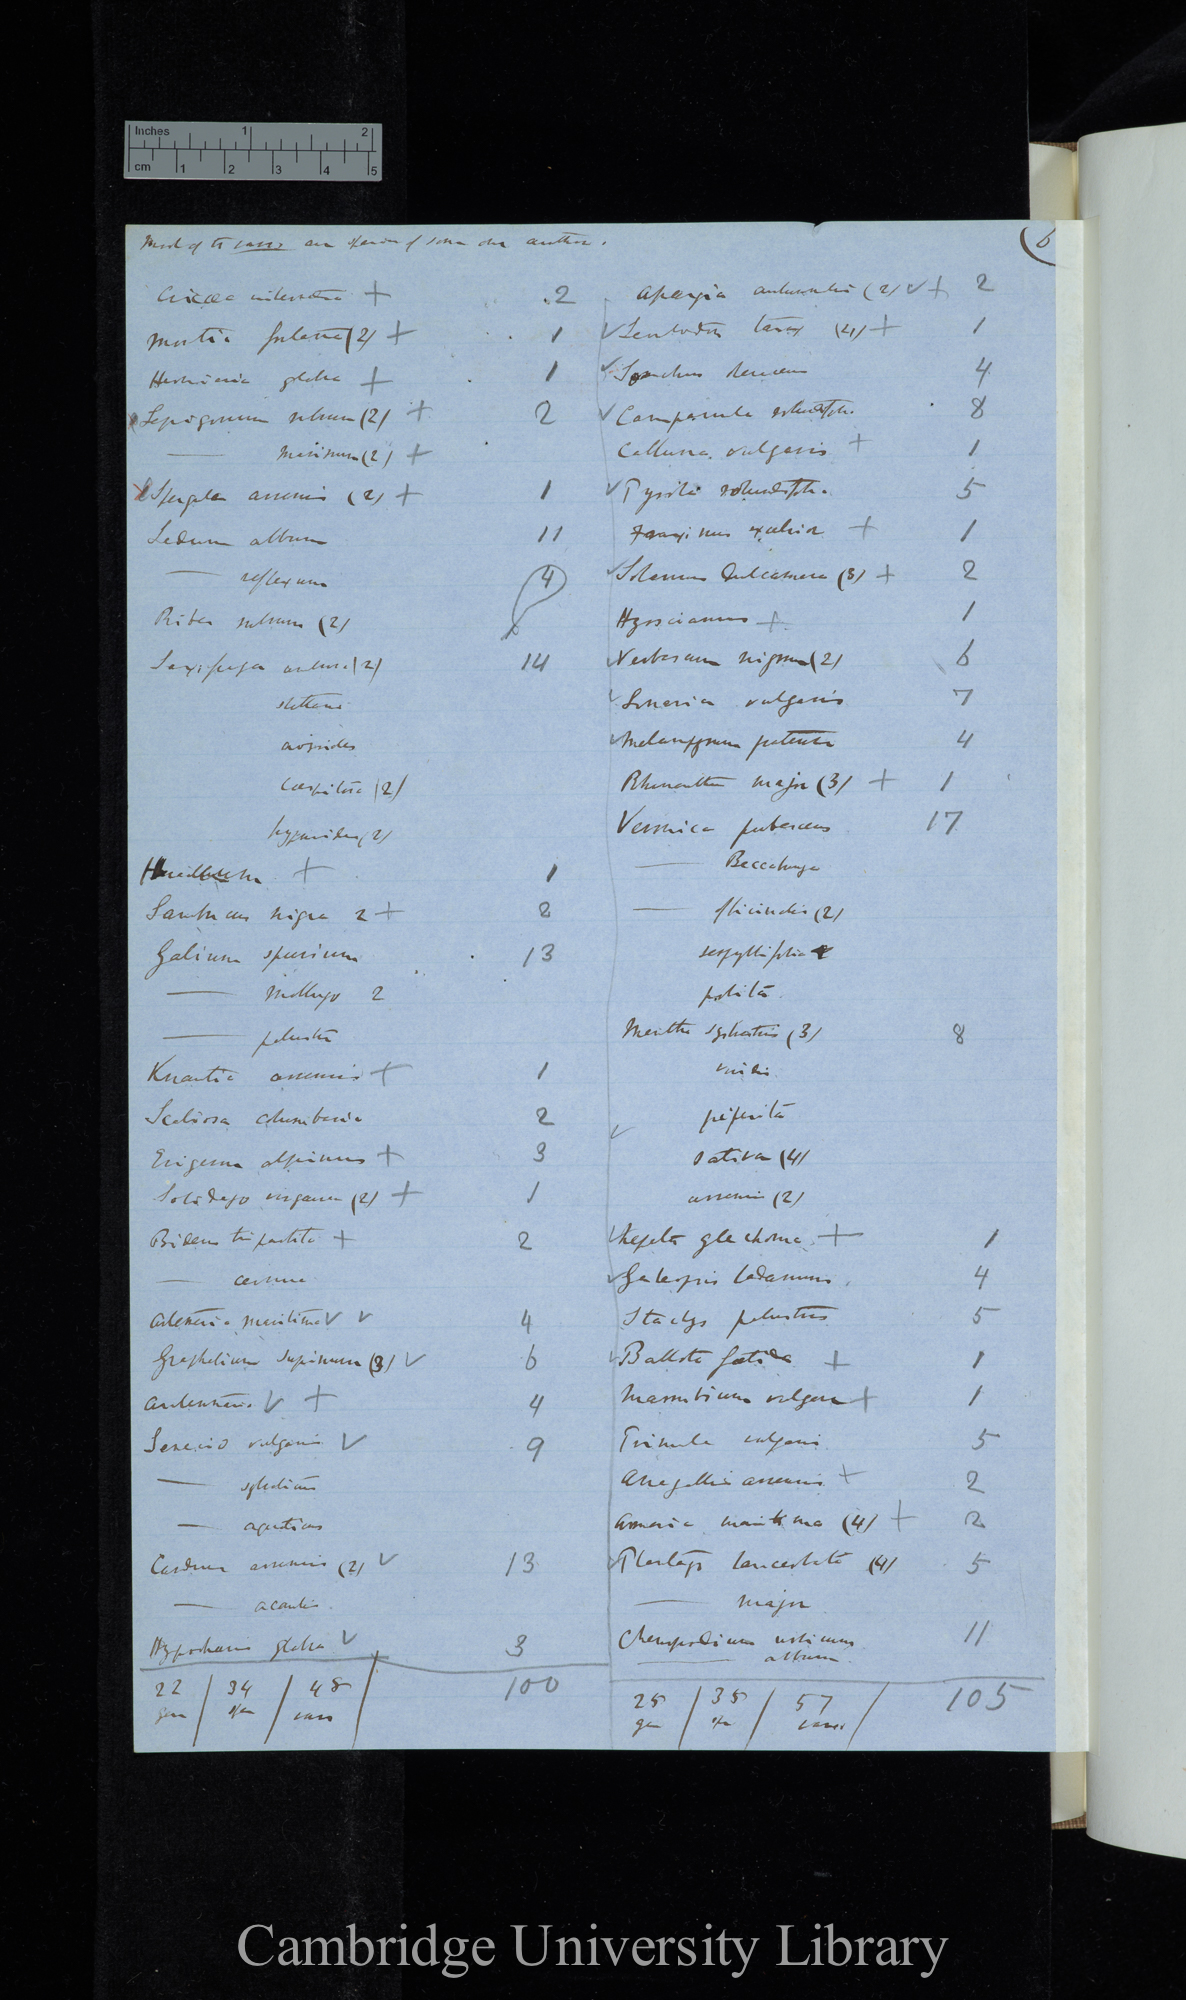 Inches 1 2
cm 1 2 3 4 5
Most of the vars are species of some one author.
(6
Circæa intermedia + 2
Montia fontana (2) + 1
Herniaria glabra + 1
Lepigonum rubrum (2) + 2
—— marinum (2) +
Spergula arvensis (2) + 1
Sedum album 11
—— reflexum 4
Ribes rubrum (2)
Saxifraga (2) 14
stellaris
aizoides
cæspitosa (2)
hypnoides (2)
+ 1
Sambucus nigra 2 + 2
Galium spurium 13
—— Mollugo 2
—— palustre
Knautia arvensis + 1
Scabiosa columbaria 2
Erigeron alpinus + 3
Solidago virgaurea (2) + 1
Bidens tripartita + 2
—— cernua
Artemisia maritima √ √ 4
Gnaphalium supinum (3) √ 6
Antennaria √ + 4
Senecio vulgaris √ 9
—— sylvaticus
—— aquaticus
Carduus arvensis (2) √ 13
—— acaulis
Hypochæris glabra √ 3
22 gen / 34 spe / 48 vars / 100
Apargia autumnalis (2) √ + 2
√ Leontodon tarax (4) + 1
√ Sonchus 4
√ Campanula rotundifolia 8
Calluna vulgaris + 1
√ Pyrola rotundifolia 5
Fraxinus excelsior + 1
√ Solanum Dulcamara (3) + 2
Hyosciamus + 1
√ Verbascum nigrum (2) 6
√ Linaria vulgaris 7
√ Melampyrum pratense 4
Rhinanthus major (3) + 1
Veronica pubescens 17
—— Beccabunga
—— officinalis (2)
serpyllifolia
polita
Mentha sylvatica (3) 8
viridis
piperita
√
sativa (4)
arvensis (2)
√ Nepeta glechoma + 1
√ Galeopsis Ladanum 4
Stachys palustris 5
√ Ballota fœtida + 1
Marrubium vulgare + 1
Primula vulgaris 5
Anagallis arvensis + 2
Armeria maritima (4) + 2
√ Plantago lanceolata (4) 5
—— major
Chenopodium urbicum 11
—— album
25 gen / 35 spe / 57 vars / 105
Cambridge University Library